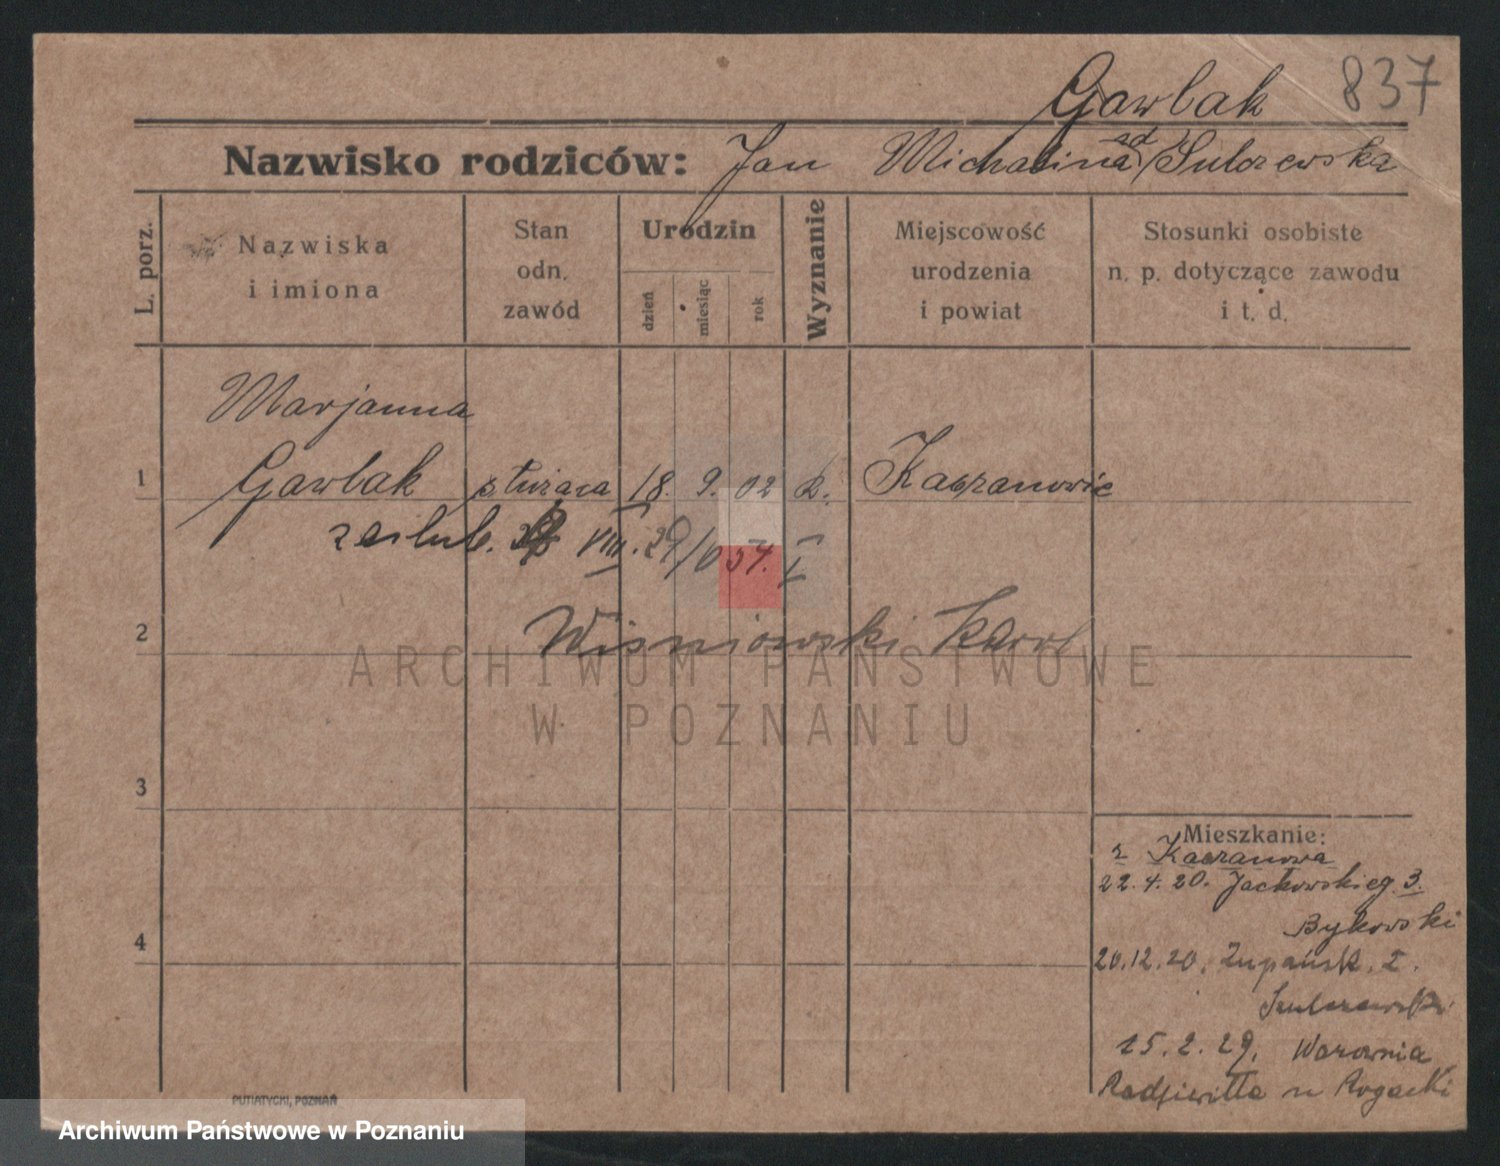 Gawlak 837
Nazwisko rodziców: Jan Michalina
L. porz.
Nazwiska
i imiona
Stan
odn.
zawód
Urodzin
dzień
miesiąc
rok
Wyznanie
Miejscowość
urodzenia
i powiat
Stosunki osobiste
n. p. dotyczące zawodu
i t. d.
Marjanna
1 Gawlak służąca 18. 9. 02 k. Kaczanowie
zaślub. VIII. 29
2 Wiśniowski Karol
ARCHIWUM PAŃSTWOWE
W POZNANIU
3
Mieszkanie:
z Kaczanowa
22. 4. 20. Jackowskieg 3.
Bykowski
4
20.12.20. Żupańsk.
15. 2. 29. Warownia
Radziwiłła
PUTIATYCKI, POZNAŃ
Archiwum Państwowe w Poznaniu